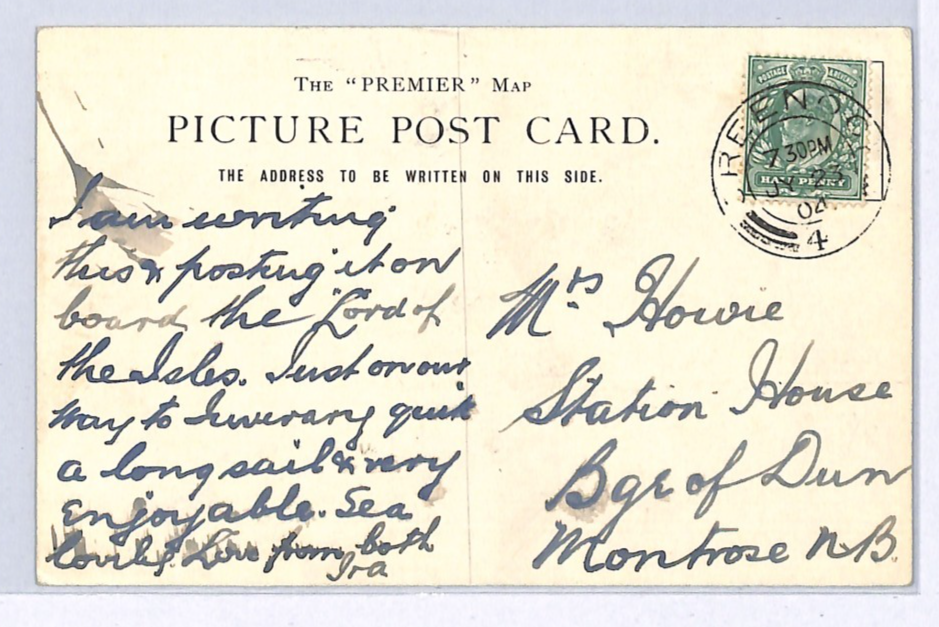 THE "PREMIER" MAP
PICTURE POST CARD.
THE ADDRESS TO BE WRITTEN ON THIS SIDE.
POSTAGE & REVENUE
HALF PENNY
GREENOCK
7 30PM
JY 23
04
4
I am writing
this & posting it on
board the "Lord of
the Isles. Just on our
way to Inverary quite
a long sail & very
enjoyable. Sea
lovely. Love from both
Ira
Mrs Howie
Station House
Bge of Dun
Montrose N.B.